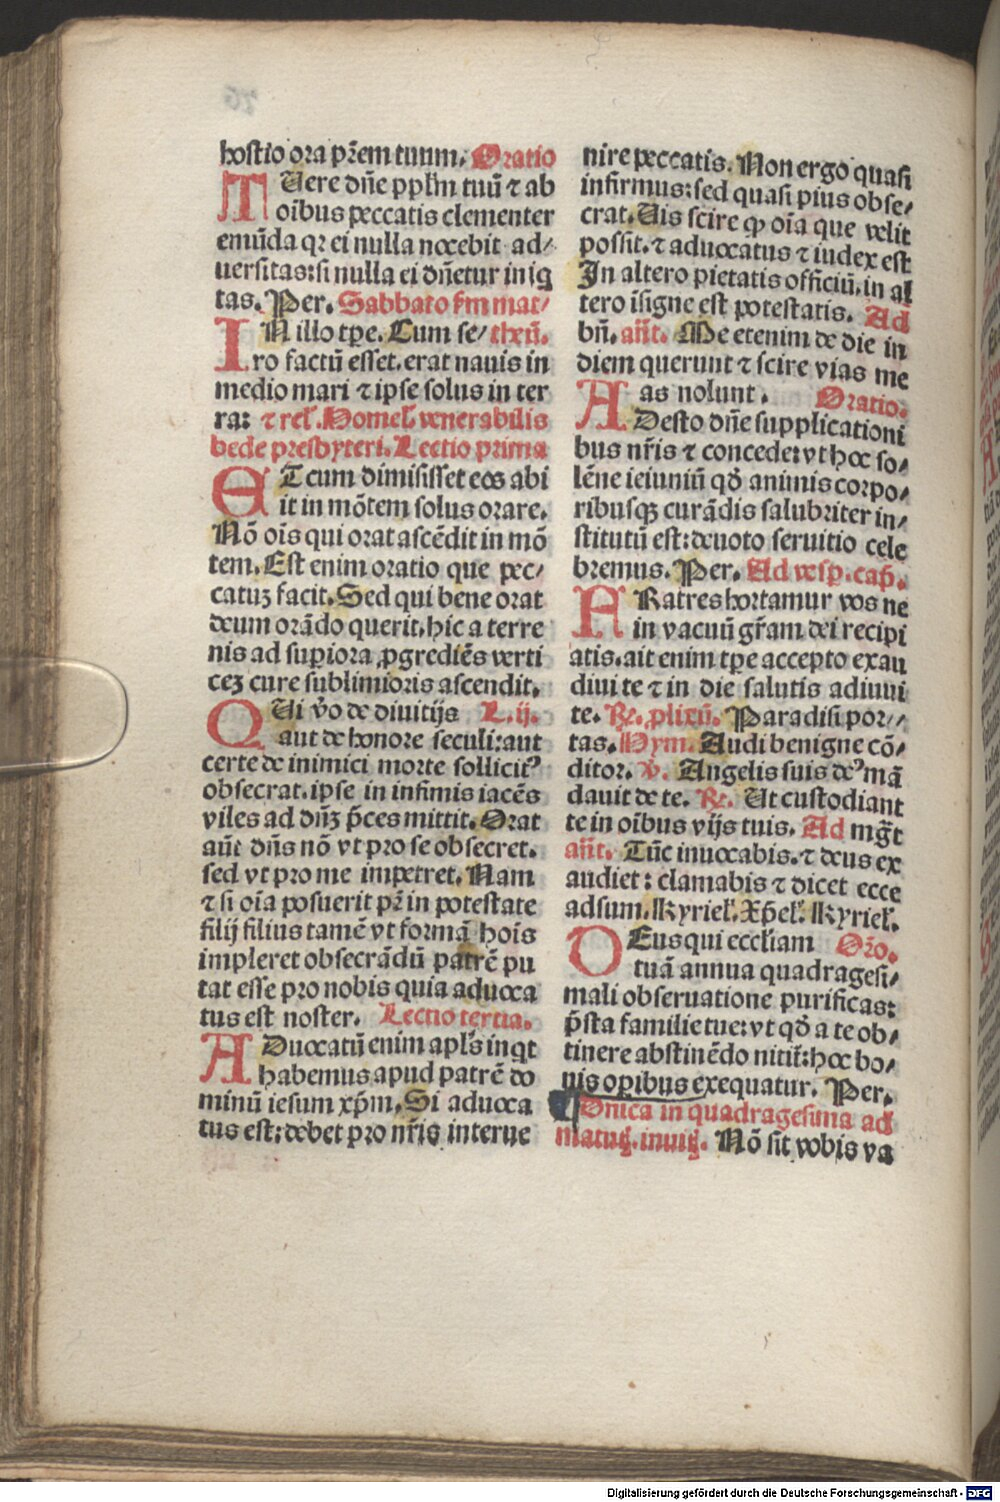 hostio ora pr̃em tuum. Oratio
TUere dñe pp̃lm tuũ ⁊ ab
oĩbus peccatis clementer
emũda qꝛ ei nulla nocebit ad⸗
uersitas: si nulla ei dñetur iniq
tas. Per. Sabbato ẜm mat⸗
IN illo tp̃e. Cum se⸗ theũ.
ro factũ esset. erat nauis in
medio mari ⁊ ipse solus in ter
ra: ⁊ rel̃. Homel̃. venerabilis
bede presbyteri. Lectio prima
ET cum dimisisset eos abi
it in mõtem solus orare.
Nõ oĩs qui orat ascẽdit in mõ
tem. Est enim oratio que pec⸗
catuꝫ facit. Sed qui bene orat
deum orãdo querit. hic a terre
nis ad superiora ꝓgrediẽs verti
ceꝫ cure sublimioris ascendit.
QUi ṽo de diuitijs L. ij.
aut de honore seculi: aut
certe de inimici morte sollicitꝰ
obsecrat. ipse in infimis iacẽs
viles ad dñꝫ p̃ces mittit. Orat
aũt dñs nõ vt pro se obsecret.
sed vt pro me impetret. Nam
⁊ si oĩa posuerit pr̃ in potestate
filij filius tamẽ vt formã hoĩs
impleret obsecrãdũ patrẽ pu
tat esse pro nobis quia aduoca
tus est noster. Lectio tertia.
ADuocatũ enim apl̃s inqt
habemus apud patrẽ do
minũ iesum xp̃m. Si aduoca
tus est: debet pro nr̃is interue
nire peccatis. Non ergo quasi
infirmus: sed quasi pius obse⸗
crat. Uis scire ꝙ oĩa que velit
possit. ⁊ aduocatus ⁊ iudex est
In altero pietatis officiũ. in al
tero ĩsigne est potestatis. Ad
bñ. añt. Me etenim de die in
diem querunt ⁊ scire vias me
as nolunt. Oratio.
ADesto dñe supplicationi
bus nr̃is ⁊ concede: vt hoc so⸗
lẽne ieiuniũ qd̃ animis corpo⸗
ribusqꝫ curãdis salubriter in⸗
stitutũ est: deuoto seruitio cele
bremus. Per. Ad vesp̃. cap̃.
FRatres hortamur vos ne
in vacuũ gr̃am dei recipi
atis. ait enim tp̃e accepto exau
diui te ⁊ in die salutis adiuui
te. ℟. ꝓlixũ. Paradisi por⸗
tas. Hym. Audi benigne cõ⸗
ditor. ℣. Angelis suis deꝰ mã
dauit de te. ℟. Ut custodiant
te in oĩbus vijs tuis. Ad mg̃t
añt. Tũc inuocabis. ⁊ deus ex
audiet: clamabis ⁊ dicet ecce
adsum. Kyriel̃. Xp̃el̃. Kyriel̃.
DEus qui eccl̃iam Or̃o.
tuã annua quadragesi⸗
mali obseruatione purificas:
p̃sta familie tue: vt qd̃ a te ob⸗
tinere abstinẽdo nitit̃: hoc bo⸗
nis operibus exequatur. Per.
Dñica in quadragesima ad
matuꝫ. inuiꝫ. Nõ sit vobis va
Digitalisierung gefördert durch die Deutsche Forschungsgemeinschaft - DFG